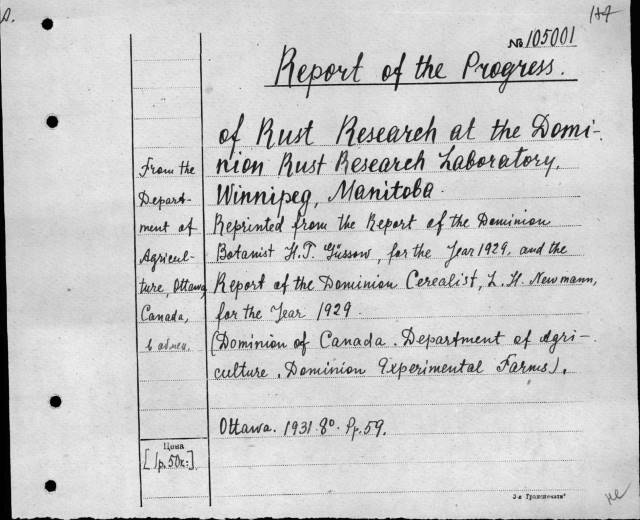 № 105001
Report of the Progress.
of Rust Research at the Domi-
nion Rust Research Laboratory,
Winnipeg, Manitoba.
Reprinted from the Report of the Dominion
Botanist H.T. Güssow, for the Year 1929, and the
Report of the Dominion Cerealist, L.H. Newmann,
for the Year 1929.
(Dominion of Canada. Department of Agri-
culture. Dominion Experimental Farms).
Ottawa. 1931. 8°. Pp. 59.
From the
Depart-
ment of
Agricul-
ture, Ottawa,
Canada,
в обмен.
Цена
[1р. 50к.]
3-я Транспечать